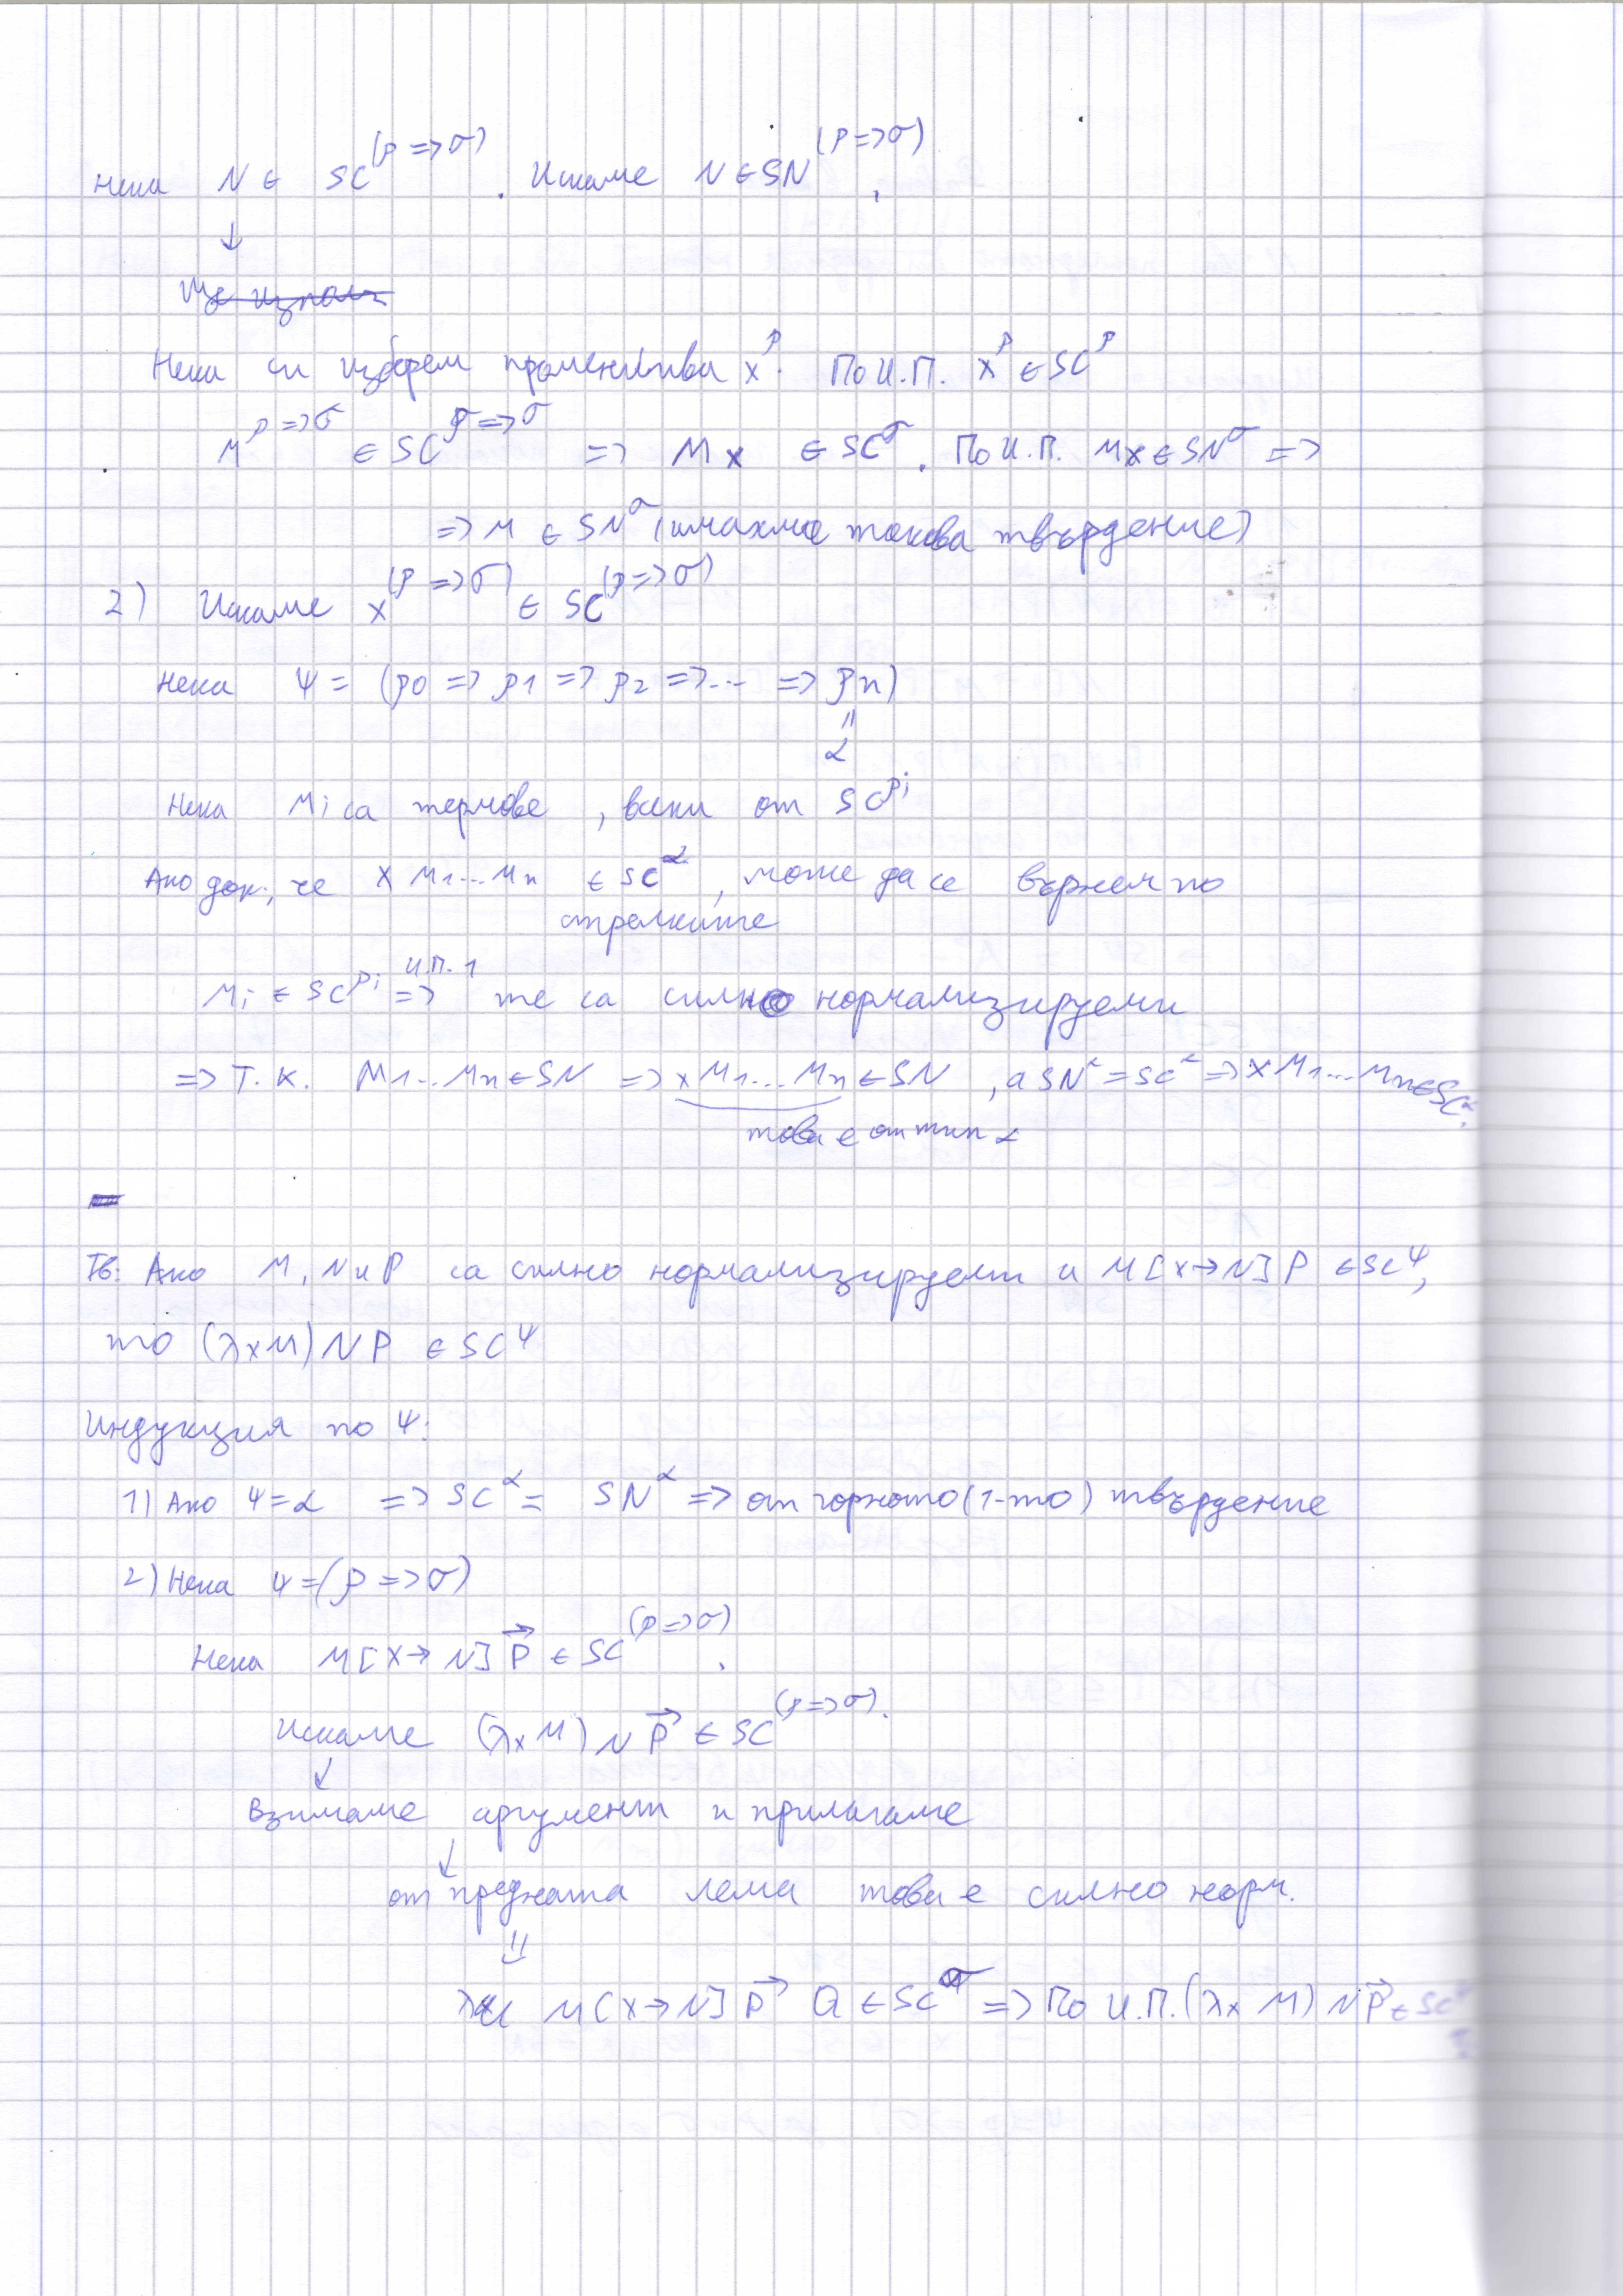 Нека N ∈ SC^(ρ=>σ). Искаме N ∈ SN^(ρ=>σ).
↓
Ще използ
Нека си изберем променлива x^ρ. По И.П. x^ρ ∈ SC^ρ
M^ρ=>σ ∈ SC^ρ=>σ => Mx ∈ SC^σ. По И.П. Mx ∈ SN^σ =>
=> M ∈ SN^σ (имахме такова твърдение)
2) Искаме x^(ρ=>σ) ∈ SC^(ρ=>σ)
Нека Ψ = (ρ0 => ρ1 => ρ2 => ... => ρn)
=
α
Нека Mi са термове, всеки от SC^ρi
Ако док., че x M1...Mn ∈ SC^α, може да се върнем по
стрелките
Mi ∈ SC^ρi И.П. 1 => те са силно нормализируеми
=> Т.к. M1...Mn ∈ SN => x M1...Mn ∈ SN, а SN^α = SC^α => x M1...Mn ∈ SC^α.
това е от тип α
Тв: Ако M, N и P са силно нормализируеми и M[x→N]P ∈ SC^Ψ,
то (λx M) N P ∈ SC^Ψ
Индукция по Ψ:
1) Ако Ψ=α => SC^α = SN^α => от горното (1-то) твърдение
2) Нека Ψ=(ρ=>σ)
Нека M[x→N] P⃗ ∈ SC^(ρ=>σ).
Искаме (λx M) N P⃗ ∈ SC^(ρ=>σ).
↓
Взимаме аргумент и прилагаме
↓
от предната лема това е силно норм.
⇓
M[x→N] P⃗ Q ∈ SC^σ => По И.П. (λx M) N P⃗ ∈ SC